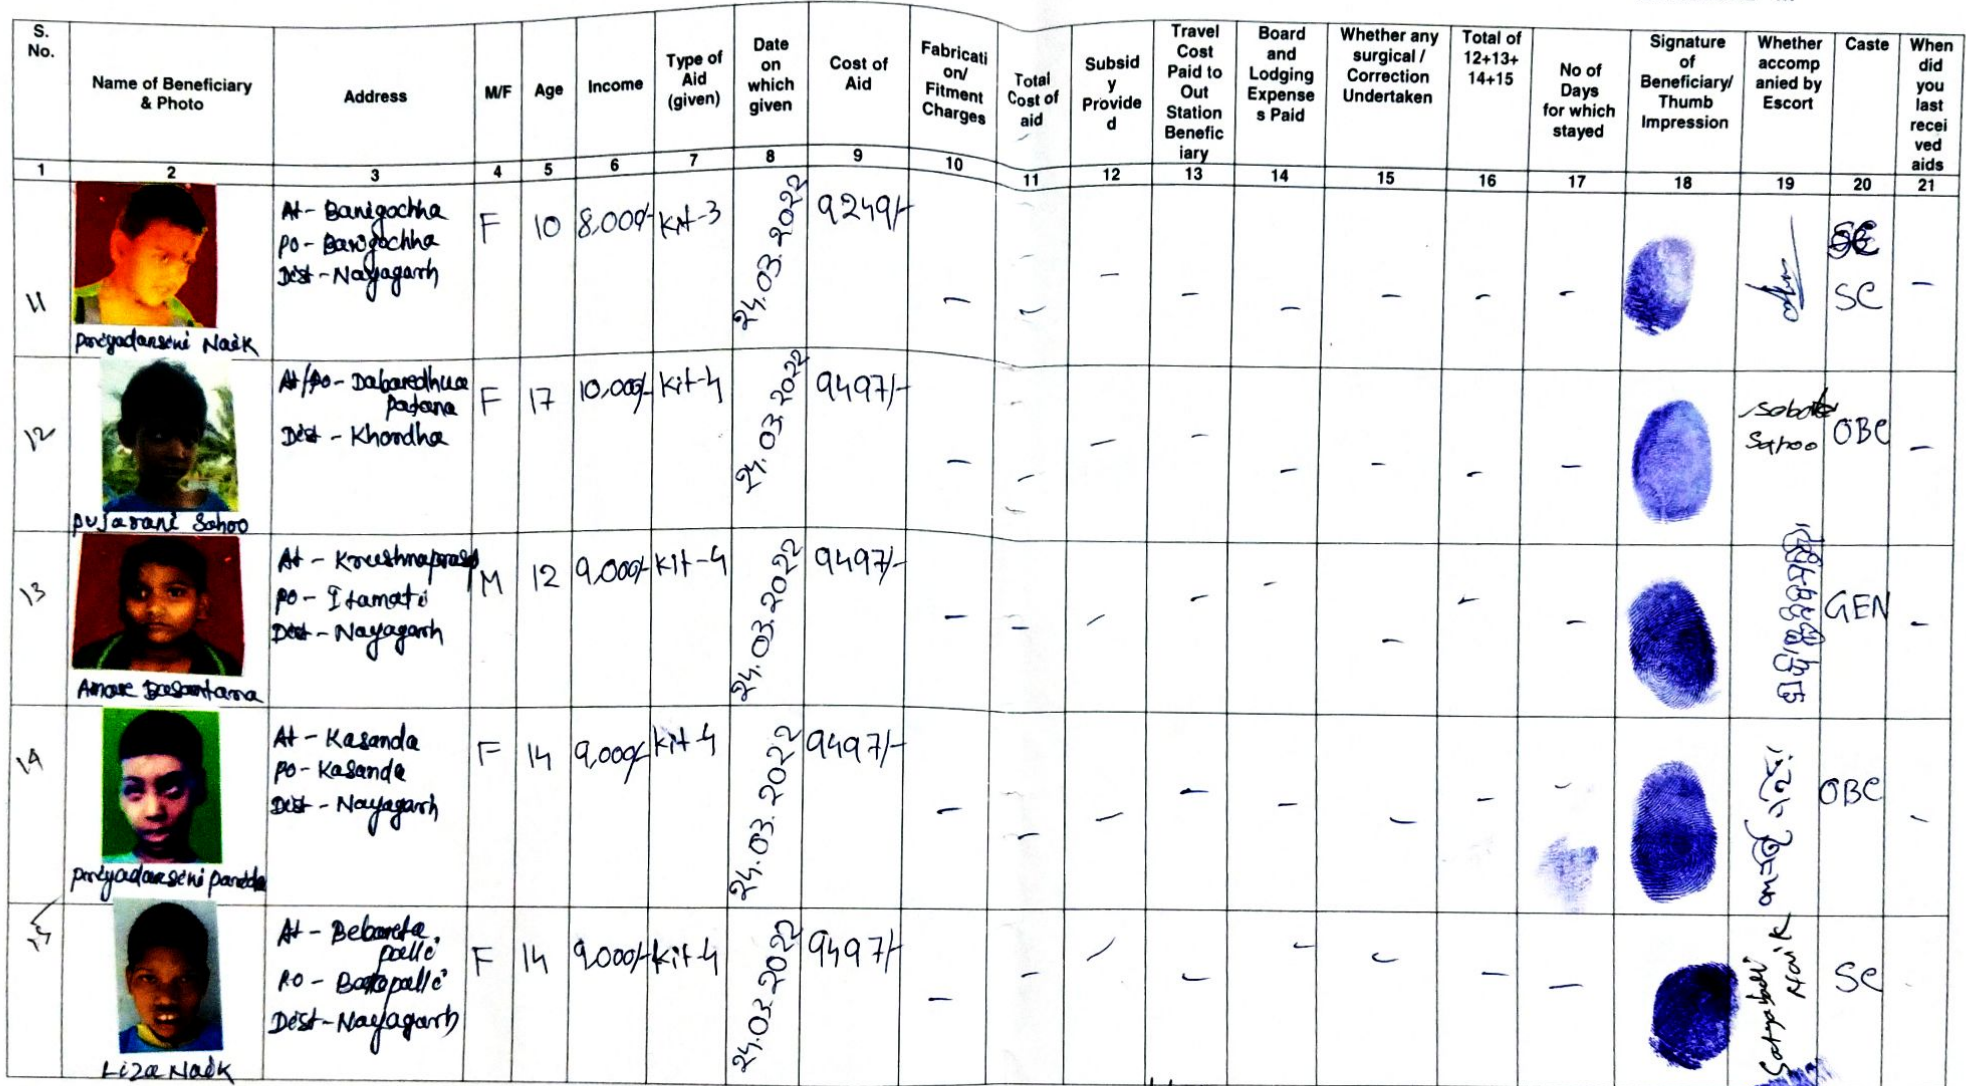 S. No.
Name of Beneficiary & Photo
Address
M/F
Age
Income
Type of Aid (given)
Date on which given
Cost of Aid
Fabricati on/ Fitment Charges
Total Cost of aid
Subsid y Provide d
Travel Cost Paid to Out Station Benefic iary
Board and Lodging Expense s Paid
Whether any surgical / Correction Undertaken
Total of 12+13+ 14+15
No of Days for which stayed
Signature of Beneficiary/ Thumb Impression
Whether accomp anied by Escort
Caste
When did you last recei ved aids
1 2 3 4 5 6 7 8 9 10 11 12 13 14 15 16 17 18 19 20 21
11
Priyadarseni Naik
At - Banigochha
Po - Banigochha
Dist - Nayagarh
F
10
8,000/-
Kit-3
24.03.2022
9249/-
SC
12
Pujarani Sahoo
At/Po - Dabaredhua
Patana
Dist - Khordha
F
17
10,000/-
Kit-4
24.03.2022
9497/-
Sahoo
OBC
13
At - Krushnaprasad
Po - Itamati
Dist - Nayagarh
M
12
9,000/-
Kit-4
24.03.2022
9497/-
GEN
14
Priyadarseni Parida
At - Kasanda
Po - Kasanda
Dist - Nayagarh
F
14
9,000/-
Kit-4
24.03.2022
9497/-
OBC
15
Liza Naik
At -
palli
Po -
Dist - Nayagarh
F
14
9,000/-
Kit-4
24.03.2022
9497/-
Satyabadi
Naik
SC